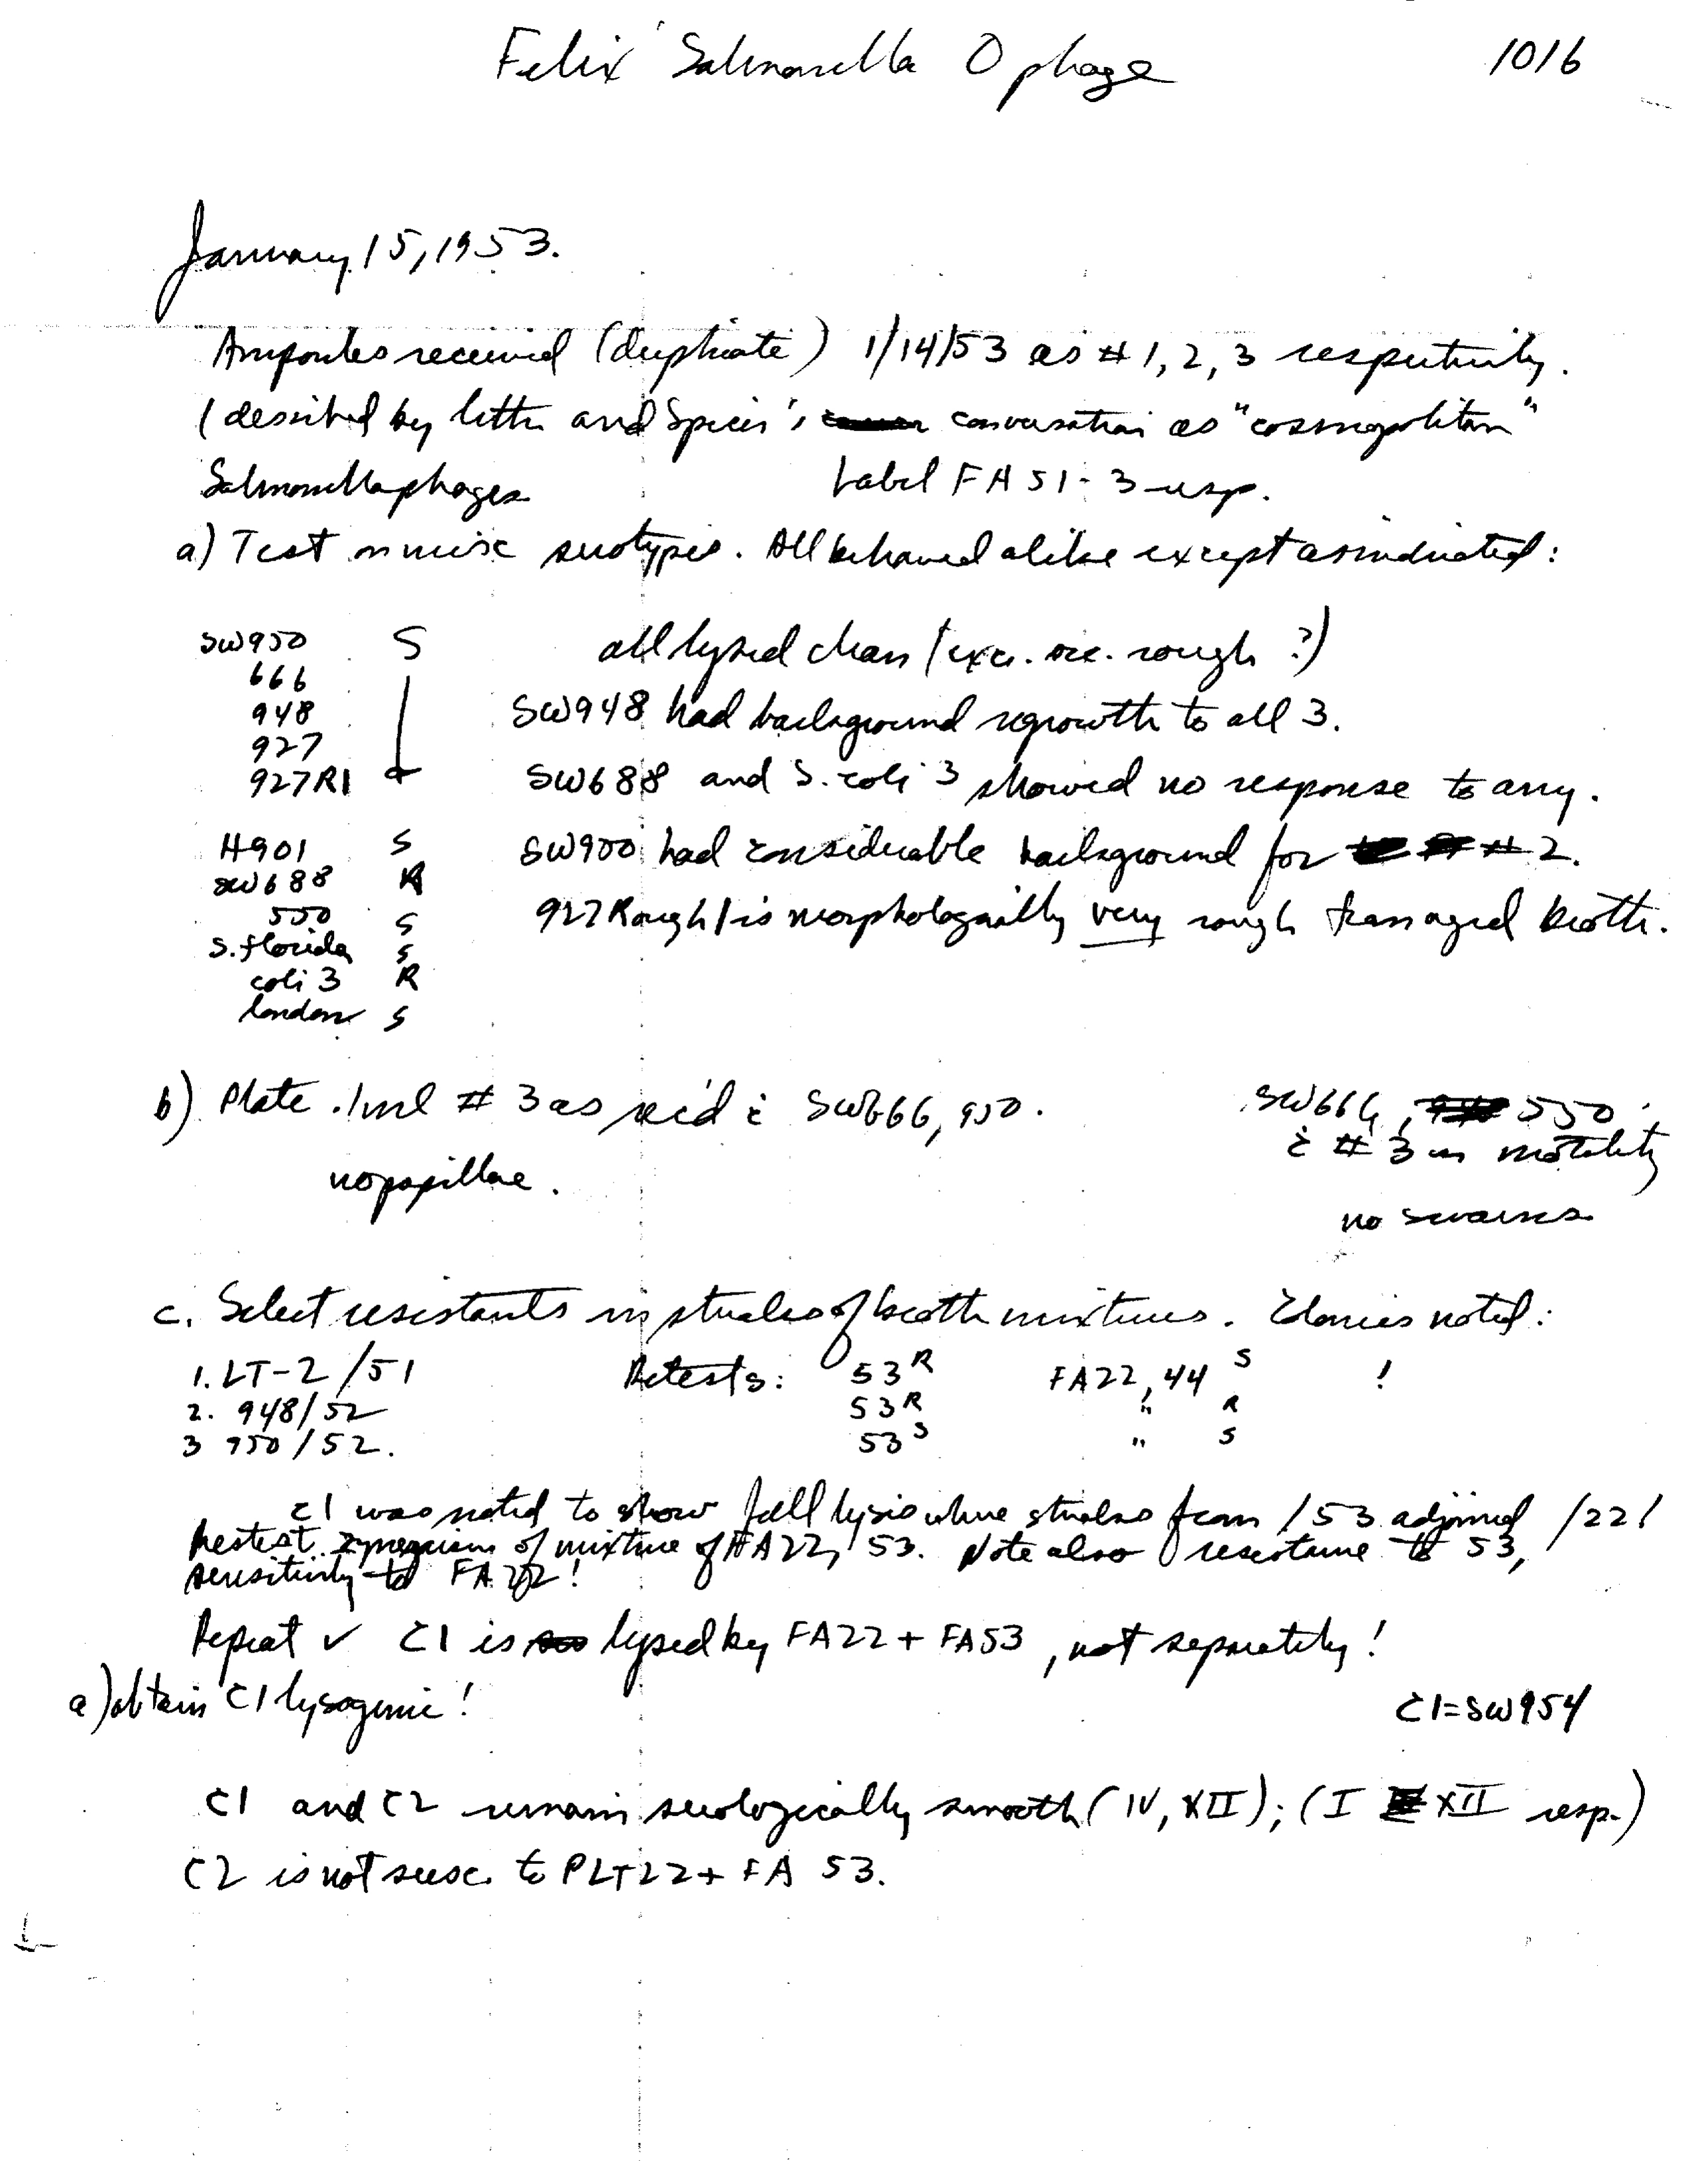 Felix Salmonella O phage 1016
January 15, 1953.
Ampoules received (duplicate) 1/14/53 as # 1, 2, 3 respectively.
(described by letter and Spicer's conversation as "cosmopolitan"
Salmonellaphages Label FA 51-3 resp.
a) Test on misc serotypes. All behaved alike except as indicated:
SW950 S all lysed clean (exc. occ. rough ?)
666
948 SW948 had background regrowth to all 3.
927
927R1 SW688 and S. coli 3 showed no response to any.
H901 S SW900 had considerable background for # 2.
SW688 R
550 S 927 Rough 1 is morphologically very rough from aged broth.
S. florida S
coli 3 R
london S
b) Plate .1 ml # 3 as rec'd c̄ SW666, 950. SW666, 550
c̄ # 3 in motility
no papillae.
no swarms
c. Select resistants in streaks of broth mixtures. Colonies noted:
1. LT-2 /51 Retests: 53 R FA22, 44 S !
2. 948/52 53 R " R
3 950/52. 53 S " S
C1 was noted to show full lysis where streaks from /53 adjoined /22!
Retest of mixture of FA22, 53. Note also resistance to 53,
sensitivity to FA 22!
Repeat ✓ C1 is lysed by FA22 + FA53, not separately!
a) obtain C1 lysogenic! C1=SW954
C1 and C2 remain serologically smooth (IV, XII); (I XII resp.)
C2 is not susc. to PLT22 + FA 53.